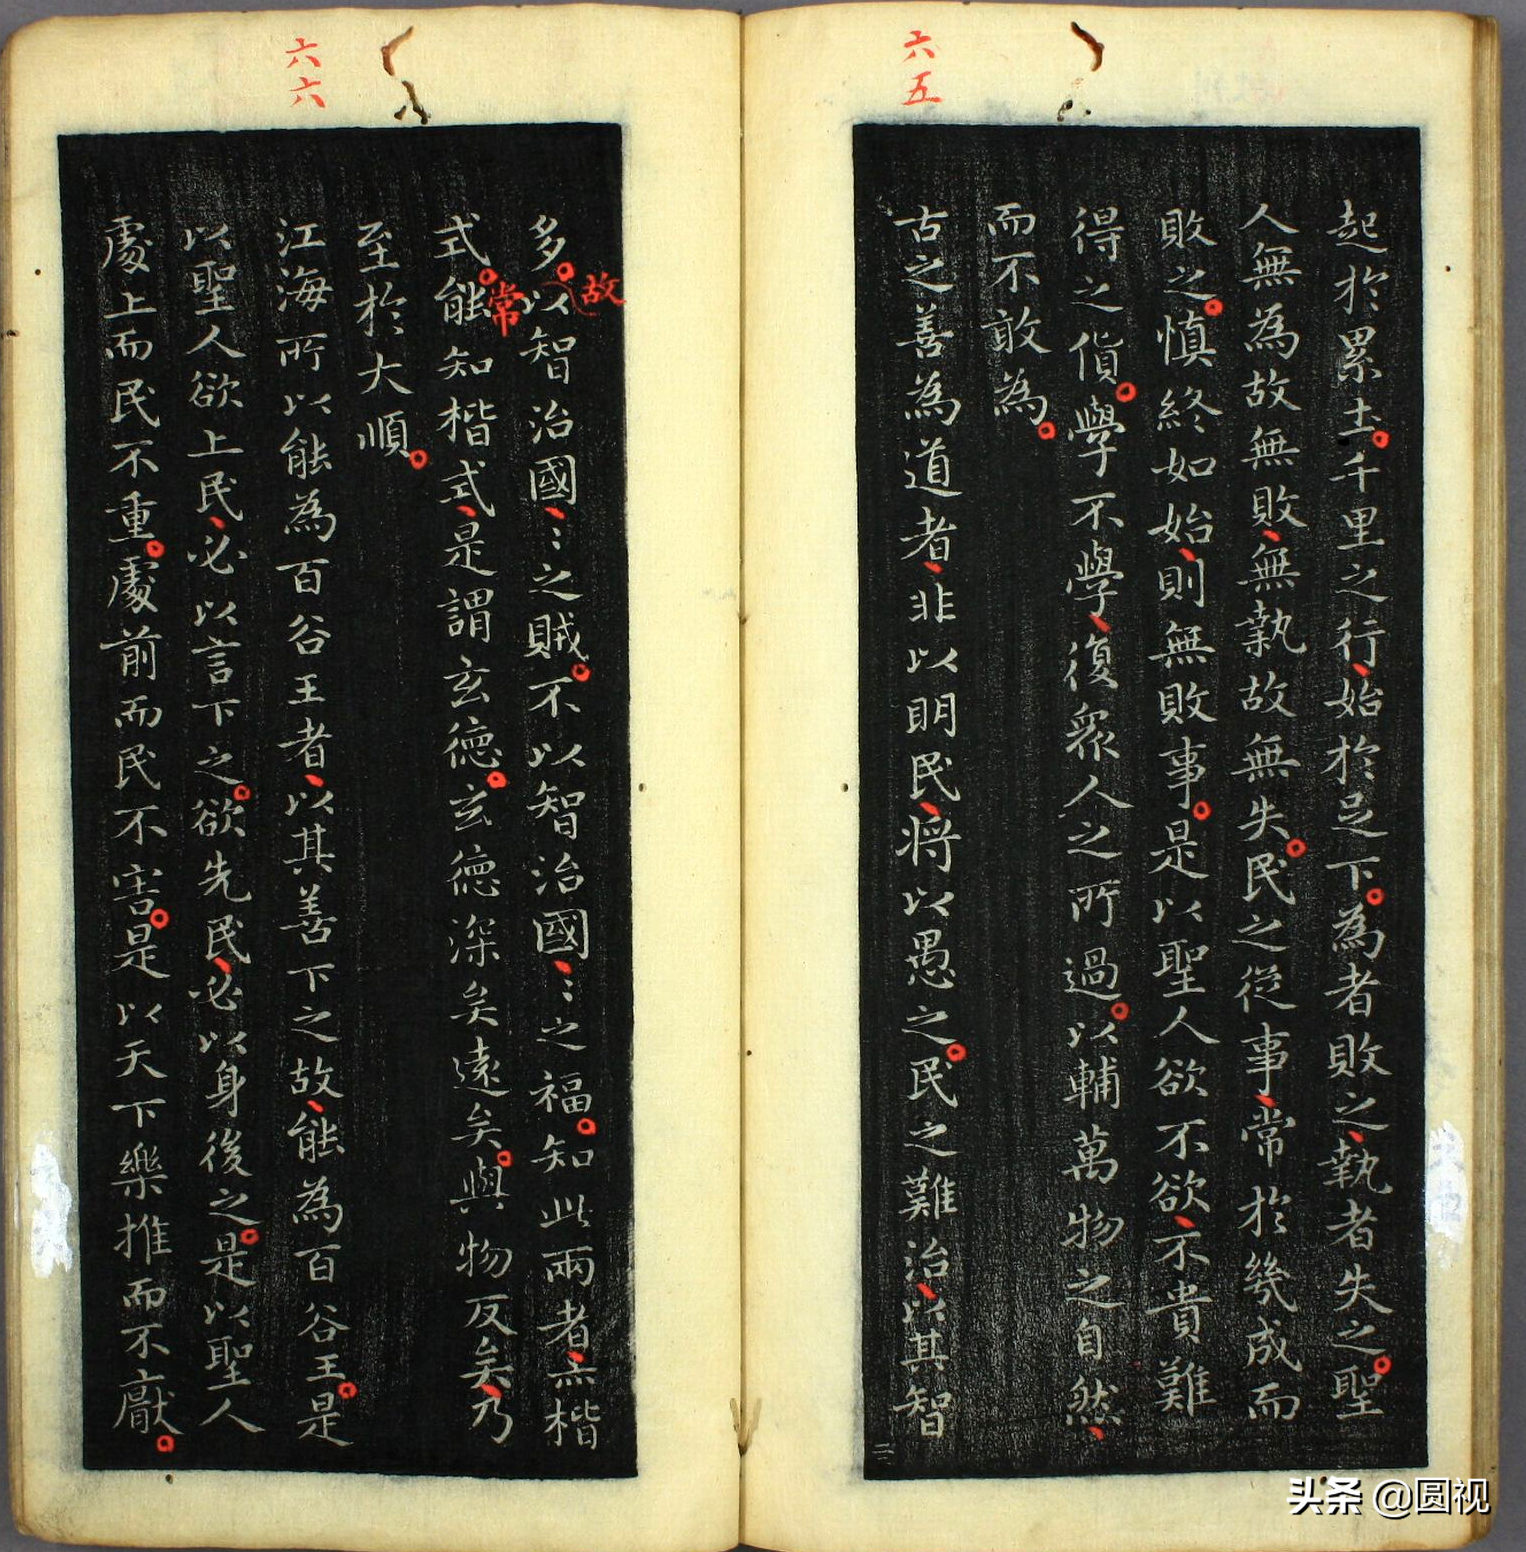 六五
起於累土。千里之行、始於足下。為者敗之、執者失之。聖
人無為故無敗、無執故無失。民之從事、常於幾成而
敗之。慎終如始、則無敗事。是以聖人欲不欲、不貴難
得之貨。學不學、復眾人之所過。以輔萬物之自然、
而不敢為。
古之善為道者、非以明民、將以愚之。民之難治、以其智
二
六六
多。以智治國、〻之賊。不以智治國、〻之福。知此兩者、亦楷
故
式。能知楷式、是謂玄德。玄德深矣遠矣。與物反矣、乃
常
至於大順。
江海所以能為百谷王者、以其善下之故、能為百谷王。是
以聖人欲上民、必以言下之。欲先民、必以身後之。是以聖人
處上而民不重。處前而民不害。是以天下樂推而不厭。
头条 @圆视